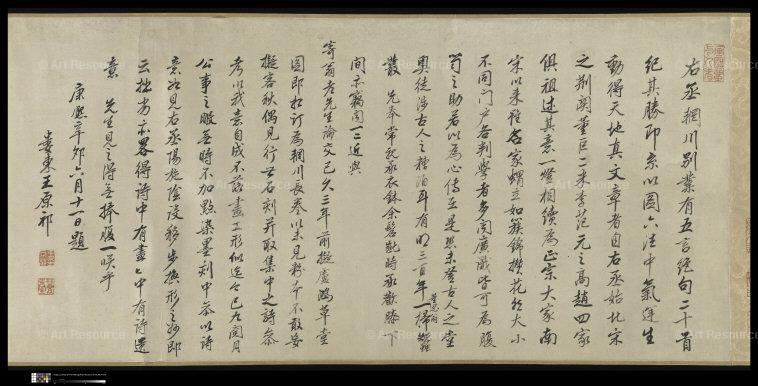 右丞輞川別業有五言絕句二十首
紀其勝即系以圖六法中氣運生
動得天地真文章者自右丞始北宋
之荊關董巨二米李范元之高趙四家
俱祖述其意一燈相續為正宗大家南
宋以來雖名家蝟立如簇錦攢花然大小
不同門戶各判學者多聞廣識皆可為腹
笥之助若以為心傳在是恐未登古人之堂
奧徒涉古人之糟粕耳有明三百年董思翁一掃蠶
叢先奉常親承衣鉢余髫齔時承歡膝下
間亦竊聞一二近與
寄翁老先生論交已久三年前擬盧鴻草堂
圖即相訂為輞川長卷以未見粉本不敢妄
擬客秋偶見行世石刻并取集中之詩參
考以我意自成不落畫工形似迄今已九閱月
公事之暇無時不加點染墨刻中參以詩
意如見右丞陽施陰設移步換形之妙即
云拙劣亦畧得詩中有畫畫中有詩遺
意先生見之得無捧腹一噱乎
康熙辛卯六月十一日題
婁東王原祁
Art Resource